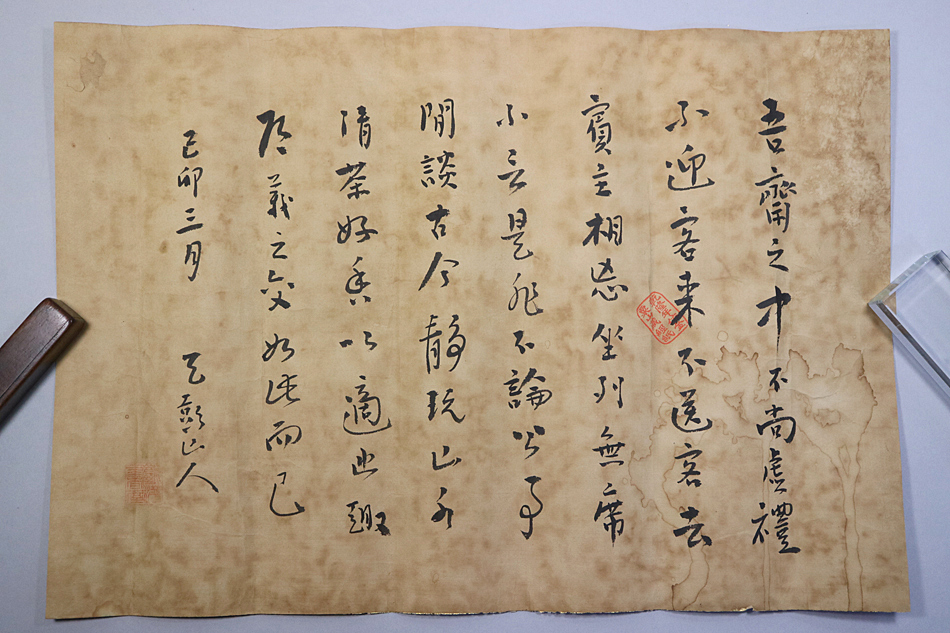 吾齋之中不尚虛禮
不迎客来不送客去
賓主相忘坐列無席
不言是非不論公事
閒談古今靜玩山水
清茶好香以適幽趣
道義之交如此而已
己卯三月 山人